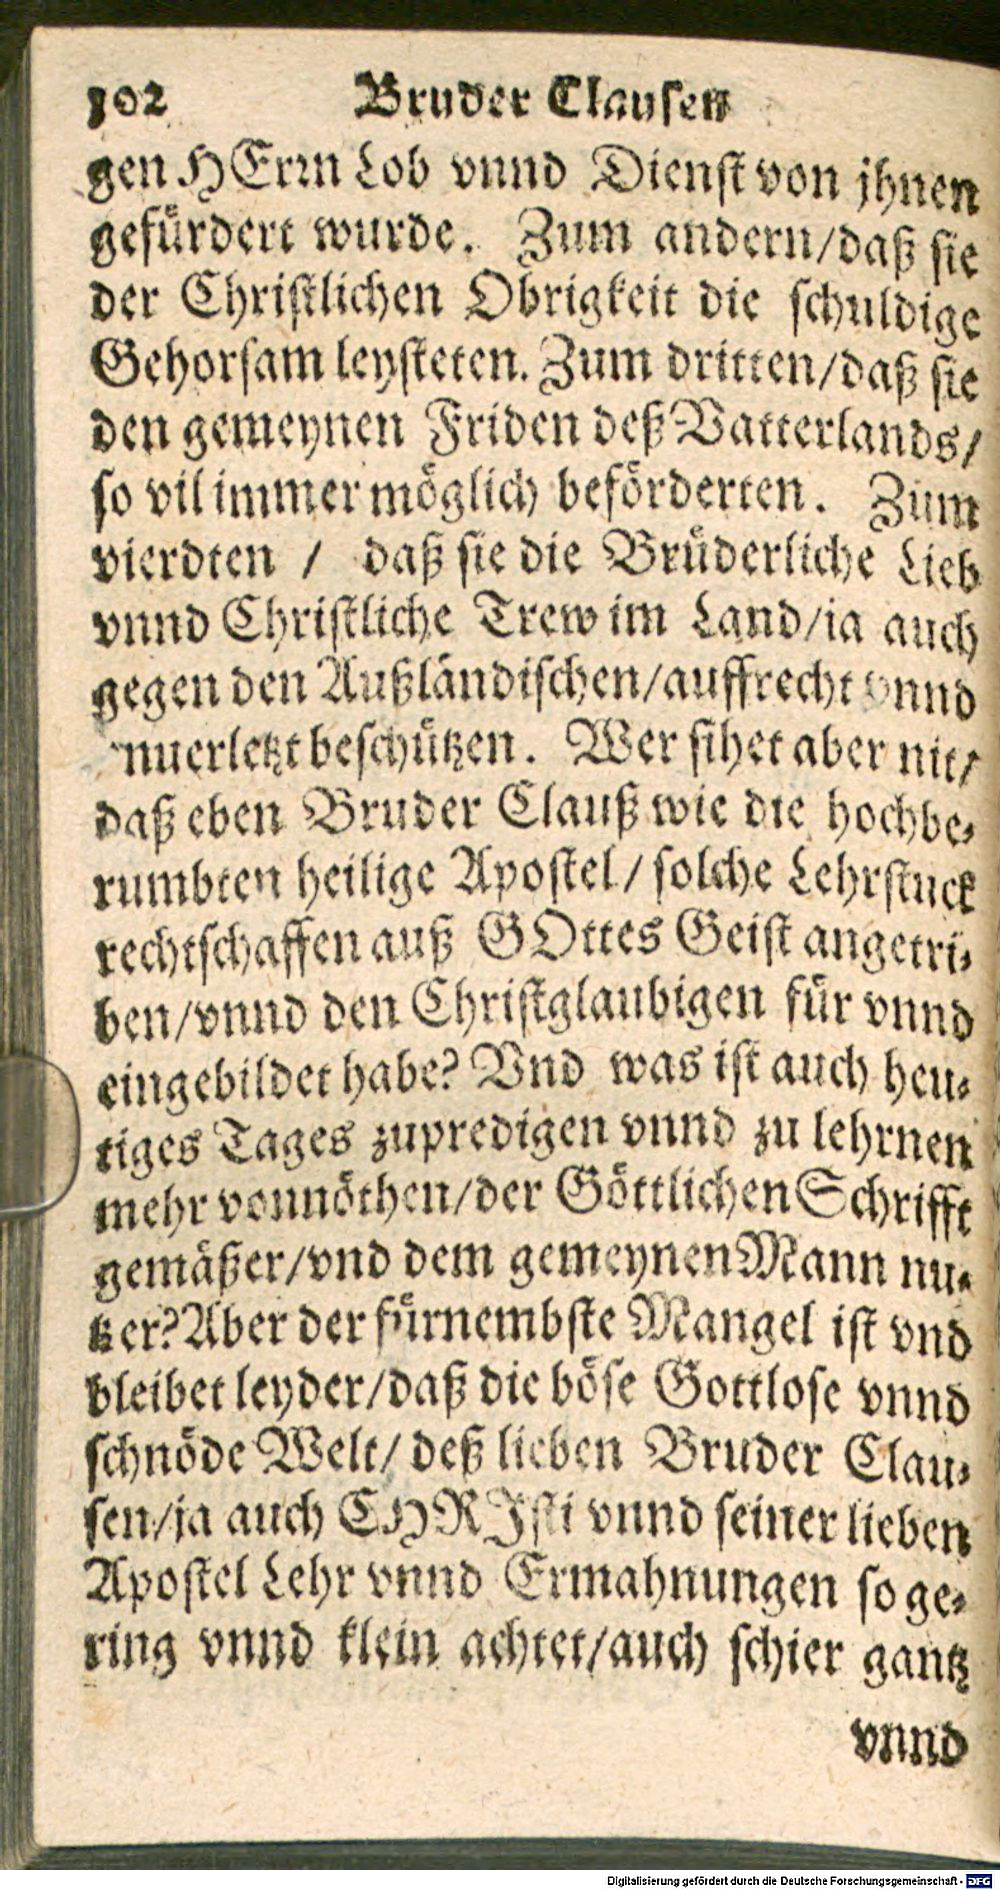 102 Bruder Clausen
gen HErrn Lob vnnd Dienst von jhnen
gefürdert wurde. Zum andern/daß sie
der Christlichen Obrigkeit die schuldige
Gehorsam leysteten. Zum dritten/daß sie
den gemeynen Friden deß Vatterlands/
so vil immer möglich beförderten. Zum
vierdten / daß sie die Brüderliche Lieb
vnnd Christliche Trew im Land/ja auch
gegen den Außländischen/auffrecht vnnd
nuerletzt beschützen. Wer sihet aber nit/
daß eben Bruder Clauß wie die hochbe-
rumbten heilige Apostel/ solche Lehrstuck
rechtschaffen auß GOttes Geist angetri-
ben/vnnd den Christglaubigen für vnnd
eingebildet habe? Vnd was ist auch heu-
tiges Tages zupredigen vnnd zu lehrnen
mehr vonnöthen/der Göttlichen Schrifft
gemäßer/vnd dem gemeynen Mann nu-
tzer? Aber der fürnembste Mangel ist vnd
bleibet leyder/daß die böse Gottlose vnnd
schnöde Welt/ deß lieben Bruder Clau-
sen/ja auch CHRIsti vnnd seiner lieben
Apostel Lehr vnnd Ermahnungen so ge-
ring vnnd klein achtet/auch schier gantz
vnnd
Digitalisierung gefördert durch die Deutsche Forschungsgemeinschaft - DFG